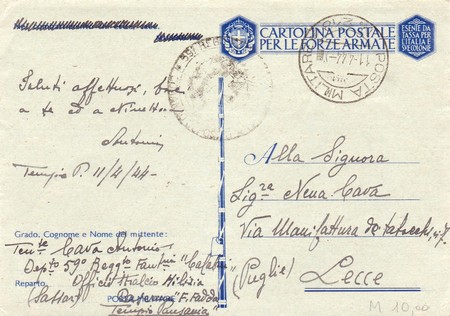 CARTOLINA POSTALE
PER LE FORZE ARMATE
ESENTE DA
TASSA PER
L'ITALIA E
SUE COLONIE
POSTA MILITARE
11-4-44
Saluti affettuosi,
a te ed a Ninetto
Antonio
Tempio P. 11/4/44-
Alla Signora
Sig.ra Nena Cava
Via Manifattura de tabacchi,
(Puglie) Lecce
Grado, Cognome e Nome del mittente:
Ten.te Cava Antonio
Dep.to 59º Regg.to Fant.ria "Calabria"
Reparto, Ufficio Stralcio Milizia
(Sassari) "F. Fadda"
POSTA MILITARE
Tempio Pausania
M 10,00